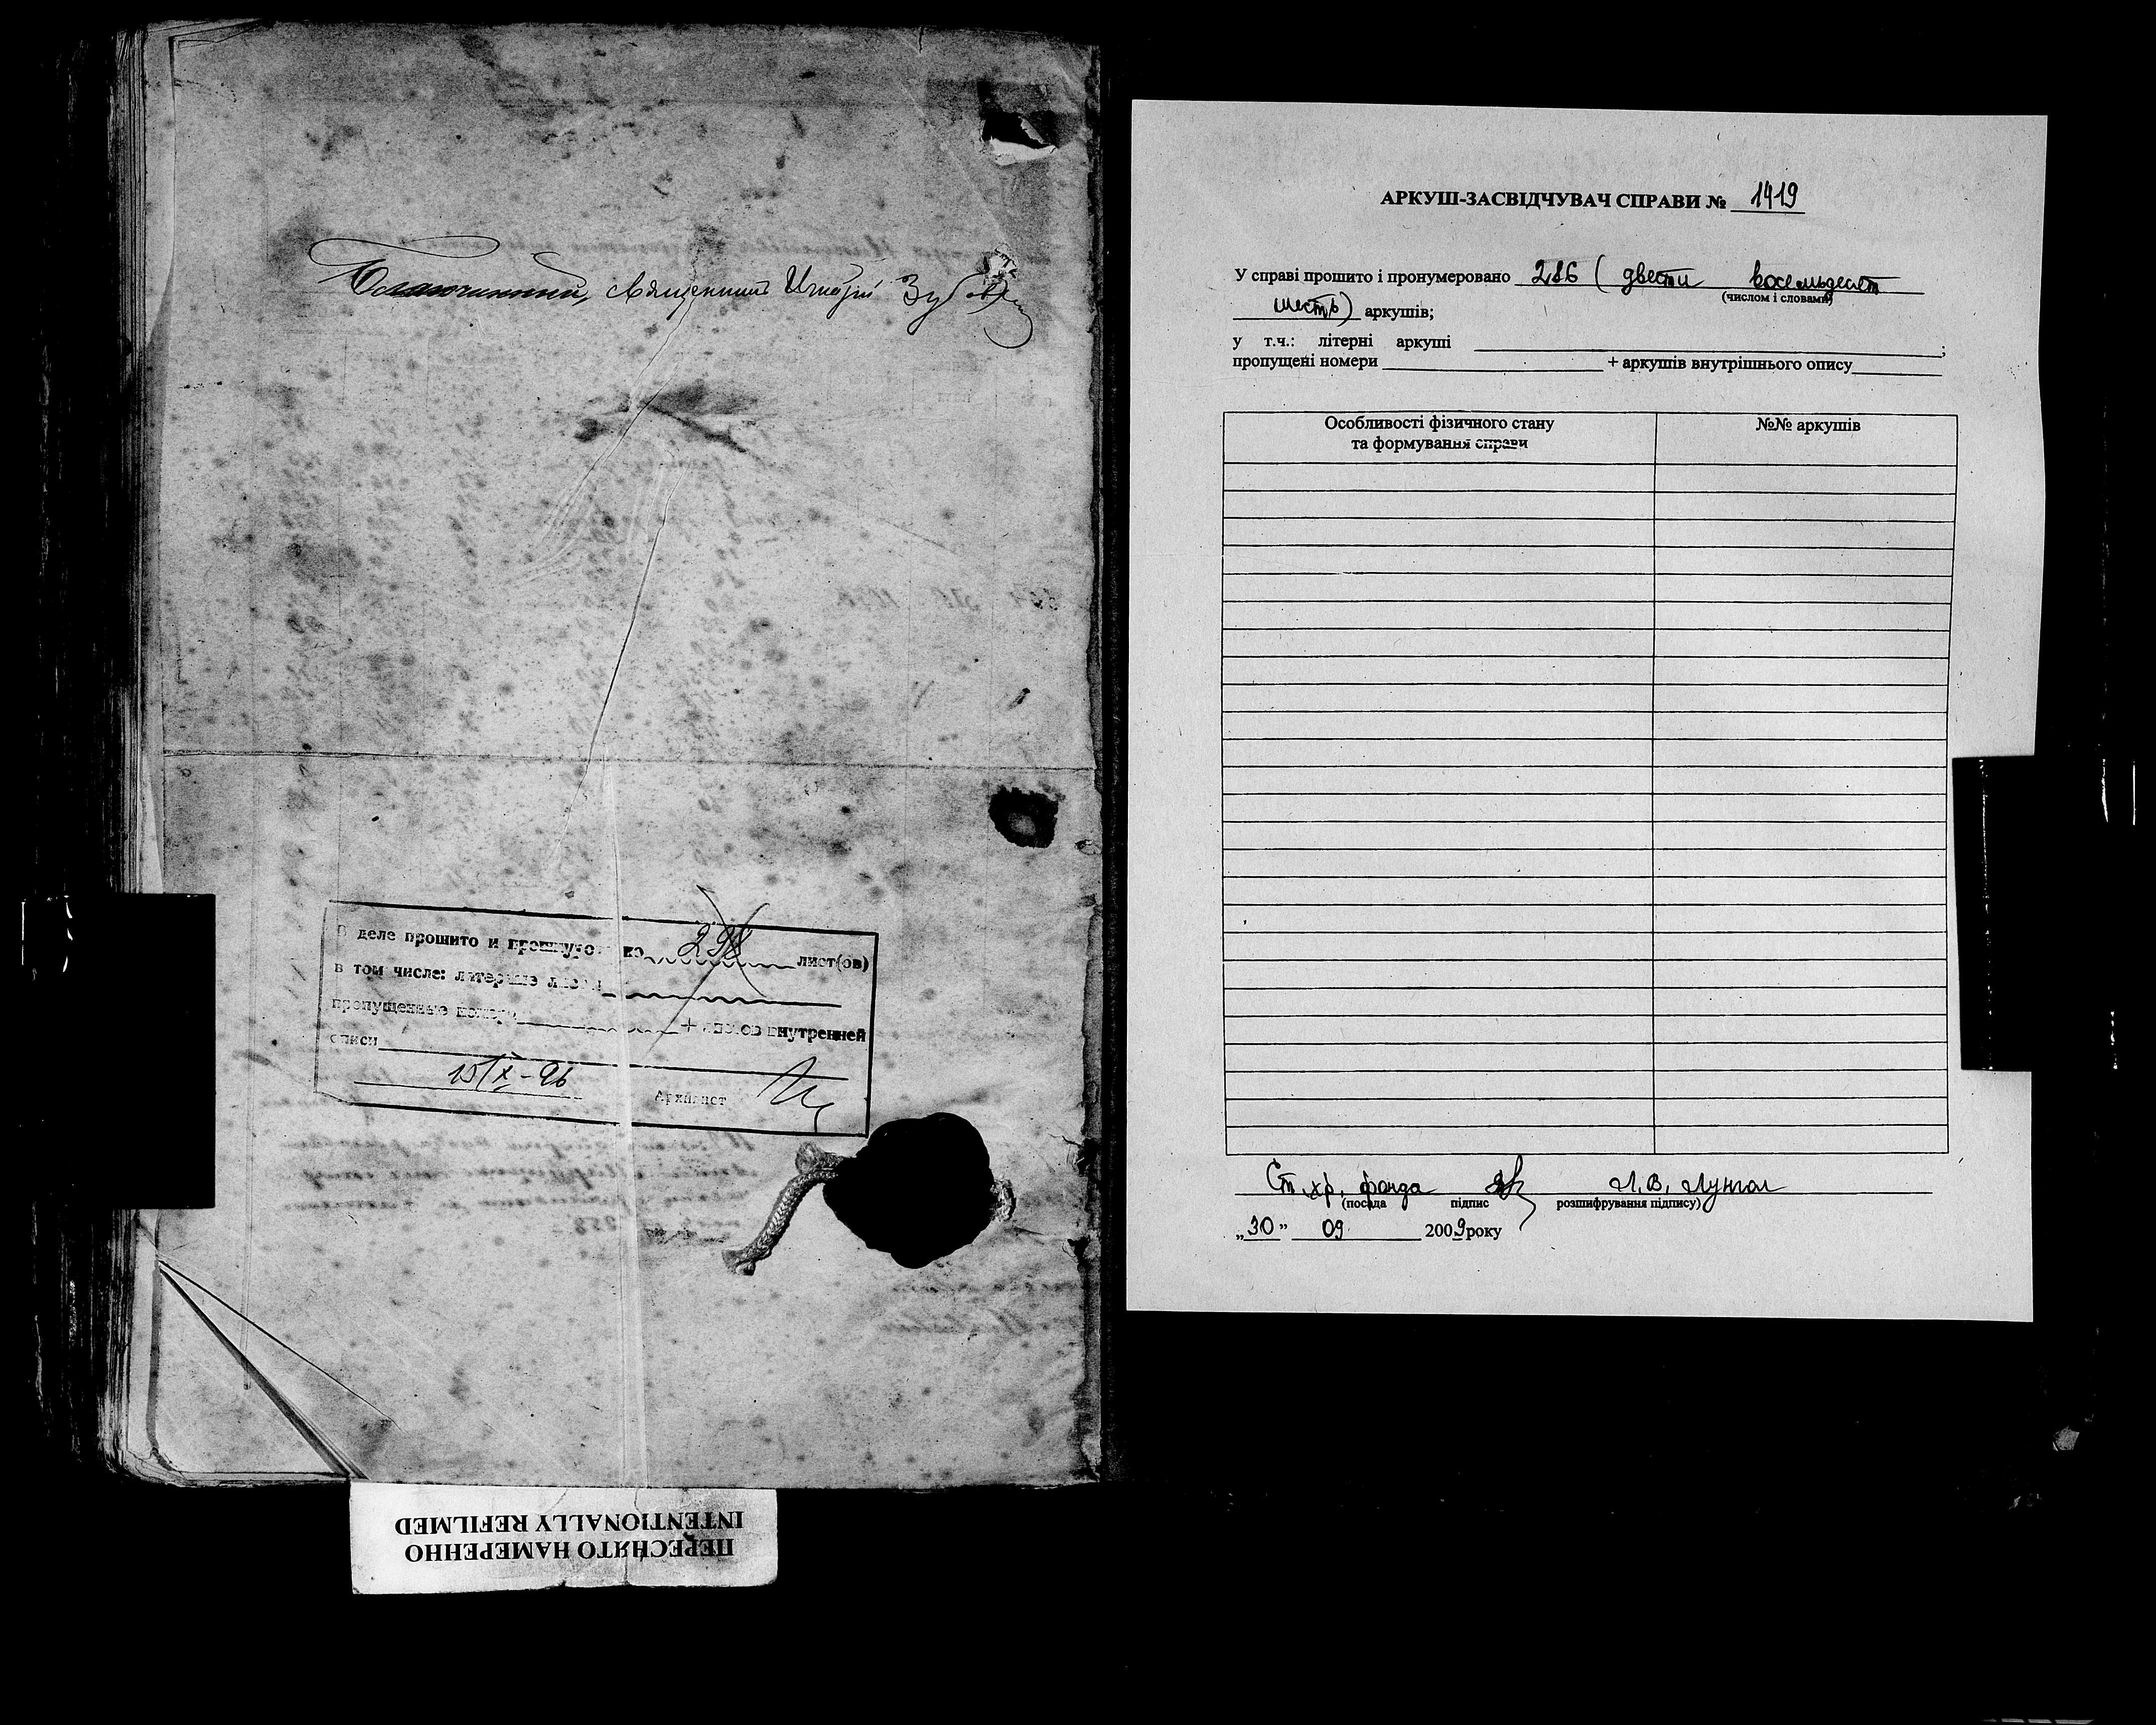 Благочинный, священникъ Игнатій
В деле прошито и пронумеровано лист(ов)
в том числе: литерные листы
пропущенные номера + листов внутренней
описи
15/X-96 Архивист
ПЕРЕСНЯТО НАМЕРЕННО
INTENTIONALLY REFILMED
АРКУШ-ЗАСВІДЧУВАЧ СПРАВИ № 1419
У справі прошито і пронумеровано 286 ( двести восемьдесят
(числом і словами)
шесть) аркушів;
у т.ч.: літерні аркуші ;
пропущені номери + аркушів внутрішнього опису
Особливості фізичного стану №№ аркушів
та формування справи
Ст. хр. фонда Л.В.
(посада підпис розшифрування підпису)
„30” 09 2009 року